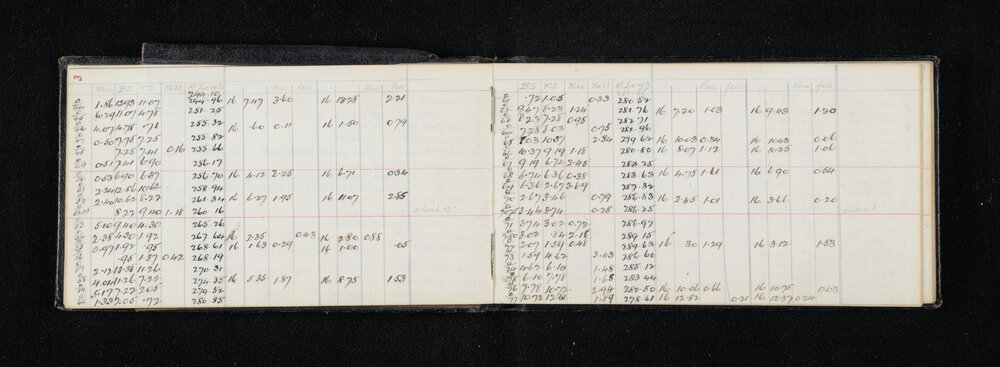 3
Rise BS FS Fall R. Level Rise Fall Rise Fall
244.10
1.86 12.93 11.07 244.96 16 7.47 3.60 16 13.25 2.21
6.29 11.07 4.78 251.25
255.32
4.07 4.78 .71 16 .60 0.11 16 1.50 0.79
0.50 7.75 7.25 255.82
7.25 7.41 0.16 255.66
0.51 7.41 6.90 256.17
0.53 6.90 6.37 256.70 16 4.12 2.25 16 6.71 0.34
2.24 12.86 10.62 258.94
2.40 10.62 8.22 261.34 16 6.27 1.95 16 11.07 2.85
8.22 9.40 1.18 260.16
5.10 9.40 4.30 265.26
2.38 4.30 1.92 267.64 16 2.35 0.43 16 2.80 0.88
0.97 1.92 .95 268.61 16 1.63 0.29 16 1.00 .05
.95 1.37 0.42 268.19
2.12 13.38 11.26 270.31
4.04 11.26 7.22 274.35 16 5.35 1.87 16 8.75 1.53
5.17 7.22 2.05 279.52
1.33 2.05 .72 280.85
BS FS Rise Fall R. Level Rise Fall Rise Fall
.72 1.05 0.33 280.52
9.47 8.23 1.24 281.76 16 7.20 1.03 16 9.43 1.20
8.23 7.28 0.95 282.71
7.28 8.03 0.75 281.96
8.03 10.37 2.34 279.62 16 10.03 0.34 16 10.43 0.06
10.37 9.19 1.18 280.80 16 8.07 1.12 16 10.25 1.06
9.19 6.74 2.45 283.25
6.74 6.36 0.38 283.63 16 4.75 1.61 16 6.90 0.54
6.36 2.67 3.69 287.32
2.67 3.46 0.79 286.53 16 2.45 1.01 16 3.66 0.20
3.46 3.74 0.28 286.25
3.74 3.02 0.72 286.97
3.02 .84 2.18 289.15
2.07 1.59 0.48 289.63 16 .30 1.29 16 3.12 1.53
1.59 4.62 3.03 286.60
4.62 6.10 1.48 285.12
6.10 7.78 1.68 283.44
7.78 10.72 2.94 280.50 16 10.06 0.66 16 10.75 0.03
10.72 12.61 1.89 278.61 16 12.82 0.21 16 12.37 0.24